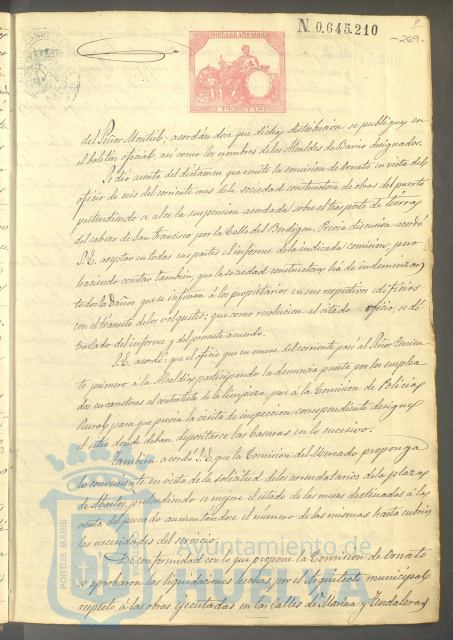 N. 0.645.210
269
2 PESETAS
del Señor Montiel; acordándose que dicha distribución se publique en
el boletín oficial, así como los nombres de los Alcaldes de Barrio designados.
Se dió cuenta del dictámen que emite la comision de Ornato en vista del
oficio de seis del corriente mes de la sociedad constructora de obras del puerto
pretendiendo se alce la suspension acordada sobre el trasporte de tierras
del cabezo de San Francisco por la Calle del Berdigon. Previa discusion acordó
S.E. aceptar en todas sus partes el informe de la indicada comision, pero
haciendo constar tambien, que la sociedad constructora há de indemnizar
todos los daños que se infieran á los propietarios en sus respectivos edificios
con el tránsito de los volquetes: que como resolucion al citado oficio, se dé
traslado del informe y del presente acuerdo.
S.E. acordó: que el oficio que en nueve del corriente pasó al Señor Tenien
te primero á la Alcaldía, participando la denuncia puesta por los emplea
dos en carreteras al contratista de la limpieza, pase á la Comision de Policía
Rural, para que previa la visita de inspeccion correspondiente designe
el sitio donde deban depositarse las basuras en lo sucesivo.
Tambien acordó S.E. que la Comision del Mercado proponga
lo conveniente en vista de la solicitud de los arrendatarios de la plaza
de Abastos, pretendiendo se mejore el estado de las mesas destinadas á la
venta del pescado aumentándose el número de las mismas hasta cubrir
las necesidades del servicio.
De conformidad con lo que propone la Comision de Ornato
se aprobaron las liquidaciones hechas por el Arquitecto municipal
respecto á las obras ejecutadas en las Calles de Marina y Tendaleras
Ayuntamiento de
HUELVA
PORTUS MARIS